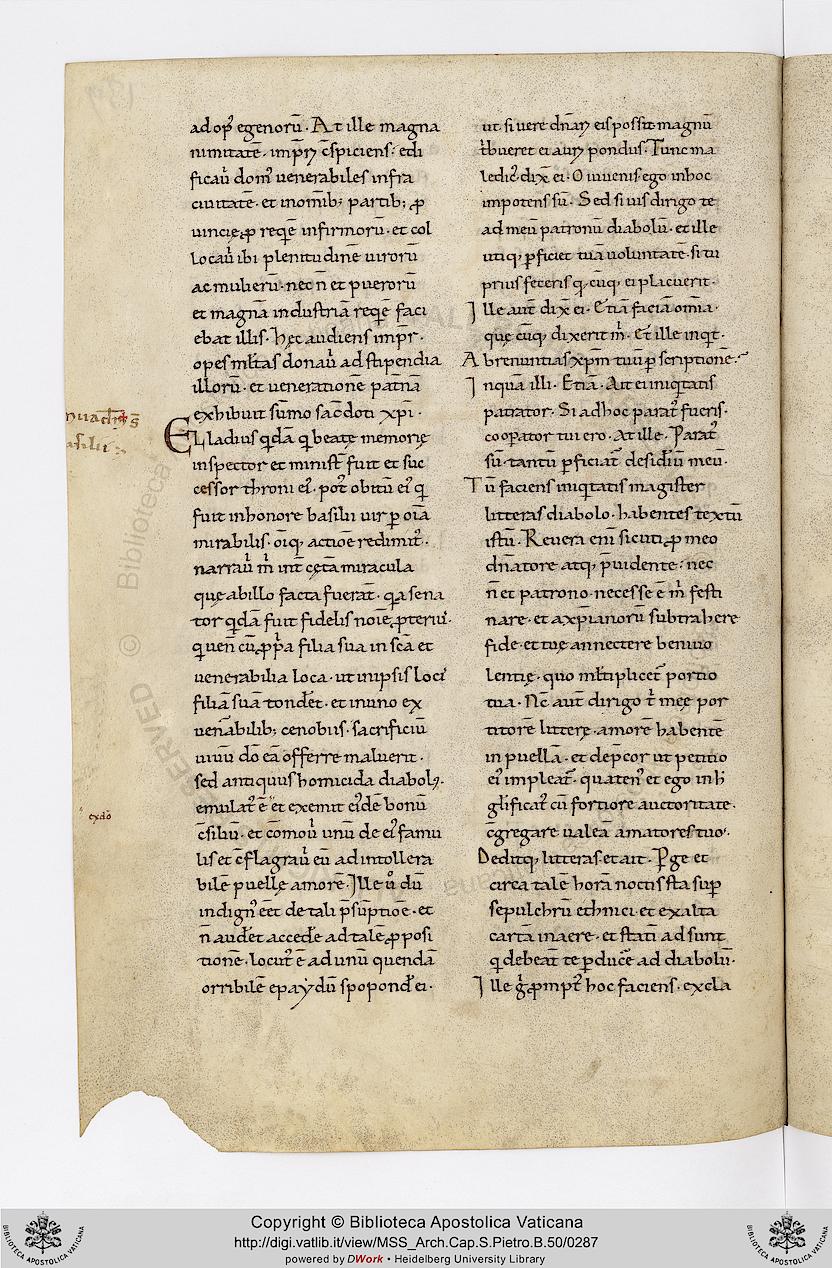 ad op̃ egenorū · At ille magna
nimitatē · imp̃rꝫ c̄spiciens · edi
ficaũ dom̃ uenerabiles infra
ciuitatē · et in om̄ib; partib; ꝓ
uincię ꝓ reqẽ infirmorū · et col
locaũ ibi plenitudinē uirorū
ac mulierū · nec n̄ et puerorū
et magnā industriā reqẽ faci
ebat illis · Hęc audiens imp̃r ·
opes ml̃tas donaũ ad stipendia
illorū · et ueneratione pat̃na
exhibuit sūmo sac̃doti xp̃i ·
Elladius qđa q beatę memorię
inspector et minist̃ fuit et suc
cessor throni ei᷒ · pos̃t obitū ei᷒ q
fuit in honore basilii uir ꝑ oīa
mirabilis · oīq; actioe redimit᷒ ·
narraũ m̃ int̃ cęt̃a miracula
quę ab illo facta fuerat̃ · qa sena
tor qđā fuit fidelis noīe ꝓterius ·
quen cū ꝓp̃a filia sua in sc̄a et
uenerabilia loca · ut in ipsis locis
filiā suā tondẽt · et in uno ex
uen̄abilib; cenobiis · sacrificiū
uiuū dō eā offerre maluerit ·
sed antiquus homicida diabol᷒ ·
emulat᷒ ē et exemit ei᷒dē bonū
c̄siliū · et c̄moũ unū de ei᷒ famu
lis et c̄flagraũ eū ad intollera
bilē puellę amorē · Ille ů dū
indign᷒ eēt de tali p̃sūptioe · et
n̄ audẽt accedẽ ad talē ꝓposi
tionē · locut᷒ ē ad unū quendā
orribilē epaydū spopond̃ ei ·
ut si uere dn̄arꝫ eis possit magnū
t̃bueret ei aurꝫ pondus · Tunc ma
ledic᷒ dix̃ ei · O iuuenis ego in hoc
impotens sū · Sed si uis dirigo te
ad meū patronū diabolū · et ille
utiq; ꝑficiet tuā uoluntatē · si tu
prius feceris q cūq; ei placuerit ·
Ille aut̃ dix̃ ei · Etiā faciā omīa ·
quę cūq; dixerit m̃ · Et ille inq̃t ·
Abrenuntias xp̃m tuū ꝑ scriptionē ·
Inqua illi · Etiā · Ait ei iniq̃tatis
patrator · Si ad hoc parat᷒ fueris ·
cooꝑator tui ero · At ille · Parat᷒
sū · tantū ꝑficiat̃ desidīū meū ·
Tū faciens iniq̃tatis magister
litteras diabolo · habentes textū
istū · Reuera eni sicuti ꝓ meo
dn̄atore atq; ꝓuidente · nec
n̄ et patrono · necesse ē m̃ festi
nare · et a xp̃ianorū subtrahere
fide · et tuę annectere beniuo
lentię · quo ml̃tiplicet̃ portio
tua · Nc̄ aut̃ dirigo t̃ meę por
titorē litterę · amorē habentē
in puellā · et dep̃cor ut petitio
ei᷒ impleat̃ · quaten᷒ et ego in h̃
gl̃ificat᷒ cū fortiore auctoritate ·
c̄gregare ualeā amatores tuos ·
Deditq; litteras · et ait · Ꝑge et
circa talē horā noctis sta suꝑ
sepulchrū ethnici · et exalta
cartā in aere · et stati adsunt
q debeat̃ te ꝑducẽ ad diabolū ·
Ille g̃ ꝓmpt᷒ hoc faciens · excla
exdō
Copyright © Biblioteca Apostolica Vaticana
http://digi.vatlib.it/view/MSS_Arch.Cap.S.Pietro.B.50/0287
powered by DWork • Heidelberg University Library